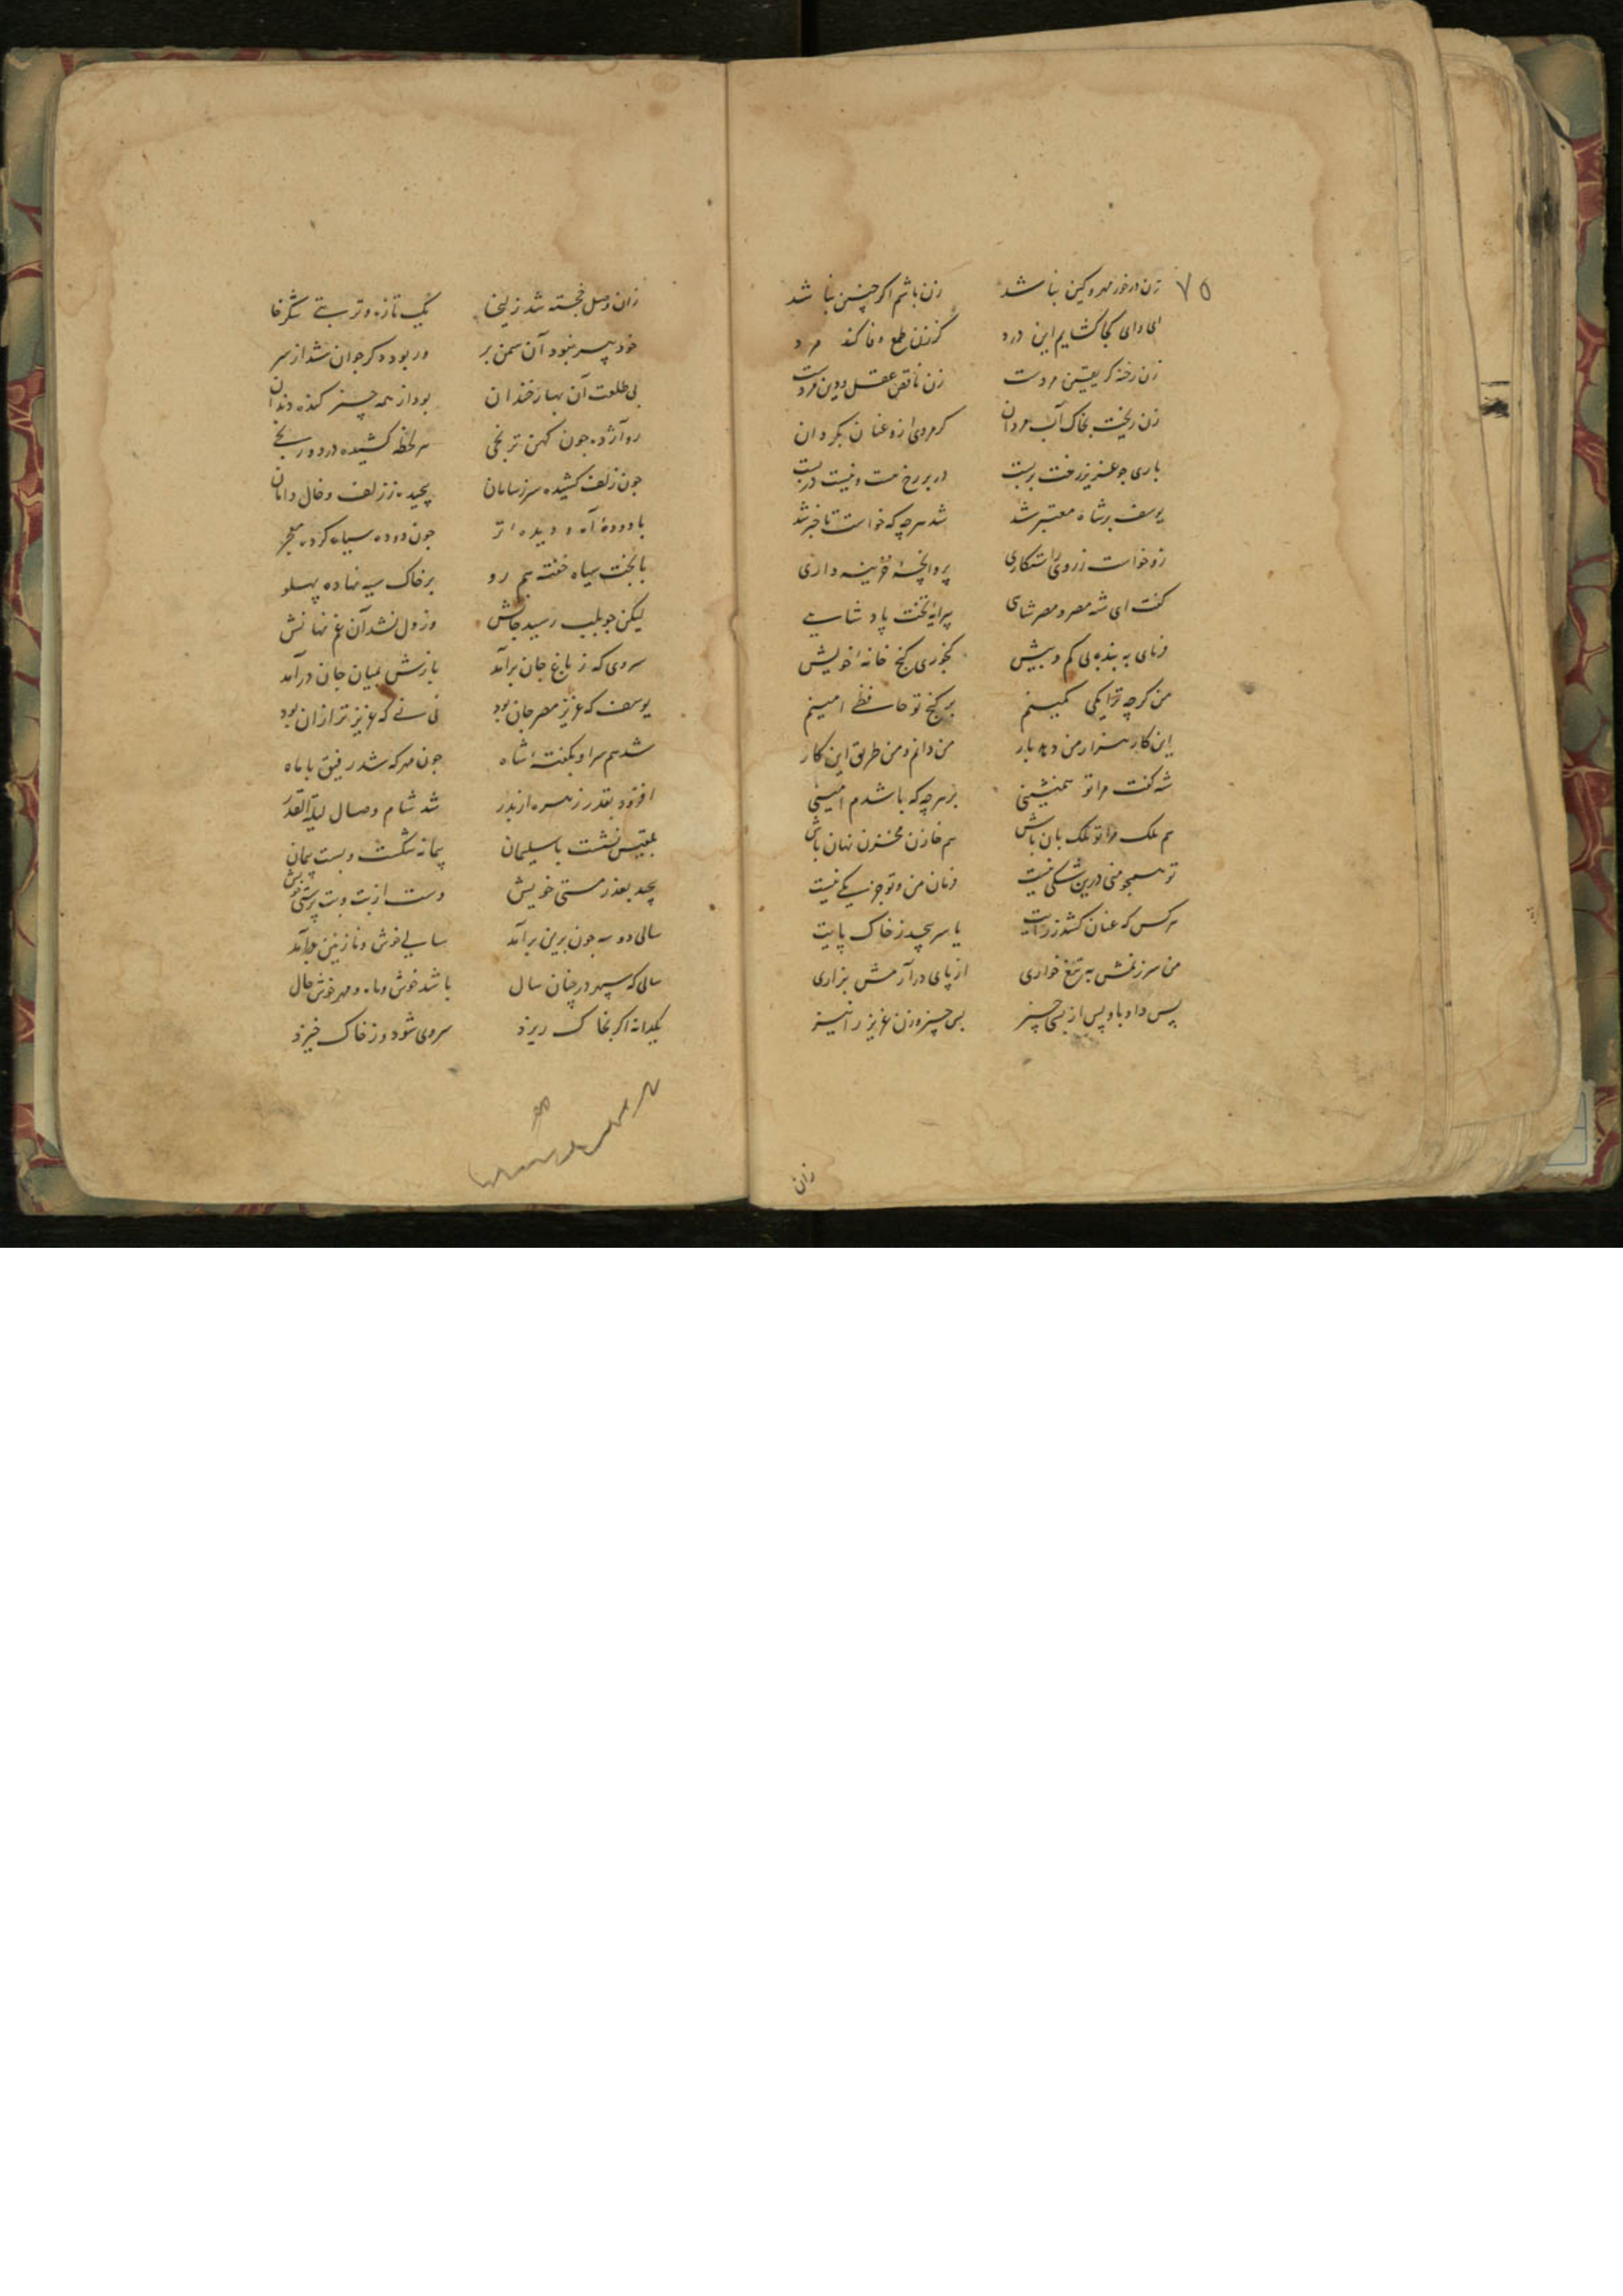 ۷۵
زن در خور مهر و کین نباشد زن باشم اگر چنین نباشد
ای وای کجا کشایم این درد کز زن طمع وفا کند مرد
زن رخنه کر یقین مردست زن ناقص عقل و دین مردست
زن ریخت بخاک آب مردان کر مردی ازو عنان بکردان
باری جو عزیز رخت بربست در بر رخ مست و نیست دربست
یوسف بر شاه معتبر شد شد هرچه که خواست تا خبر شد
زو خواست ز روی راستکاری پروانچهٔ خزینه داری
کفت ای شه مصر و مصر شاهی پیرایهٔ تخت پادشاهی
فرمای به بنده بی کم و بیش کنجوری کنج خانهٔ خویش
من کرچه ترا یکی کمینم بر کنج تو حافظی امینم
این کار هزار من دهد بار من دانم و من طریق این کار
شه کفت مرا تو همنشینی بر هرچه که باشدم امینی
هم ملک مرا تو ملک بان باش هم خازن مخزن نهان باش
تو همجو منی درین شکی نیست فرمان من و تو جز یکی نیست
هر کس که عنان کشد ز رایت یا سر بیچد ز خاک پایت
من سر زنمش به تیغ خواری از پای درآرمش بزاری
پس داد باو پس از بسی چیز بی چیز و زن عزیز را نیز
زان
زان وصل خجسته شد زلیخا یک تازه و تر بتی شکرفا
خود پیر نبود آن سمن بر ور بود دکر جوان شد از سر
بی طلعت آن بهار خندان بود از همه چیز کنده دندان
رو آژده جون کهن ترنجی هر لحظه کشیده درد و رنجی
جون زلف کشیده سر ز سامان پیچیده ز زلف و خال دامان
با دودهٔ آه و دیده تر جون دوده سیاه کرده معجر
با بخت سیاه خفته هم رو بر خاک سیه نهاده پهلو
لیکن جو بلب رسید جانش وز دل نشد آن غم نهانش
سروی که ز باغ جان برآمد بازش بمیان جان درآمد
یوسف که عزیز مصر جان بود نی نی که عزیزتر ازان بود
شد هم سر او بکفتهٔ شاه جون مهر که شد رفیق با ماه
افزود بقدر زهره از بدر شد شام وصال لیلة القدر
بلقیس نشست با سلیمان پیمانه شکست و بست پیمان
پیچید بعذر مستی خویش دست از بت و بت پرستی خویش
سالی دو سه جون برین برآمد سالی خوش و نازنین برآمد
سالی که سپهر در چنان سال باشد خوش و ماه و مهر خوش حال
یکدانه اکر بخاک ریزد سروی شود و ز خاک خیزد